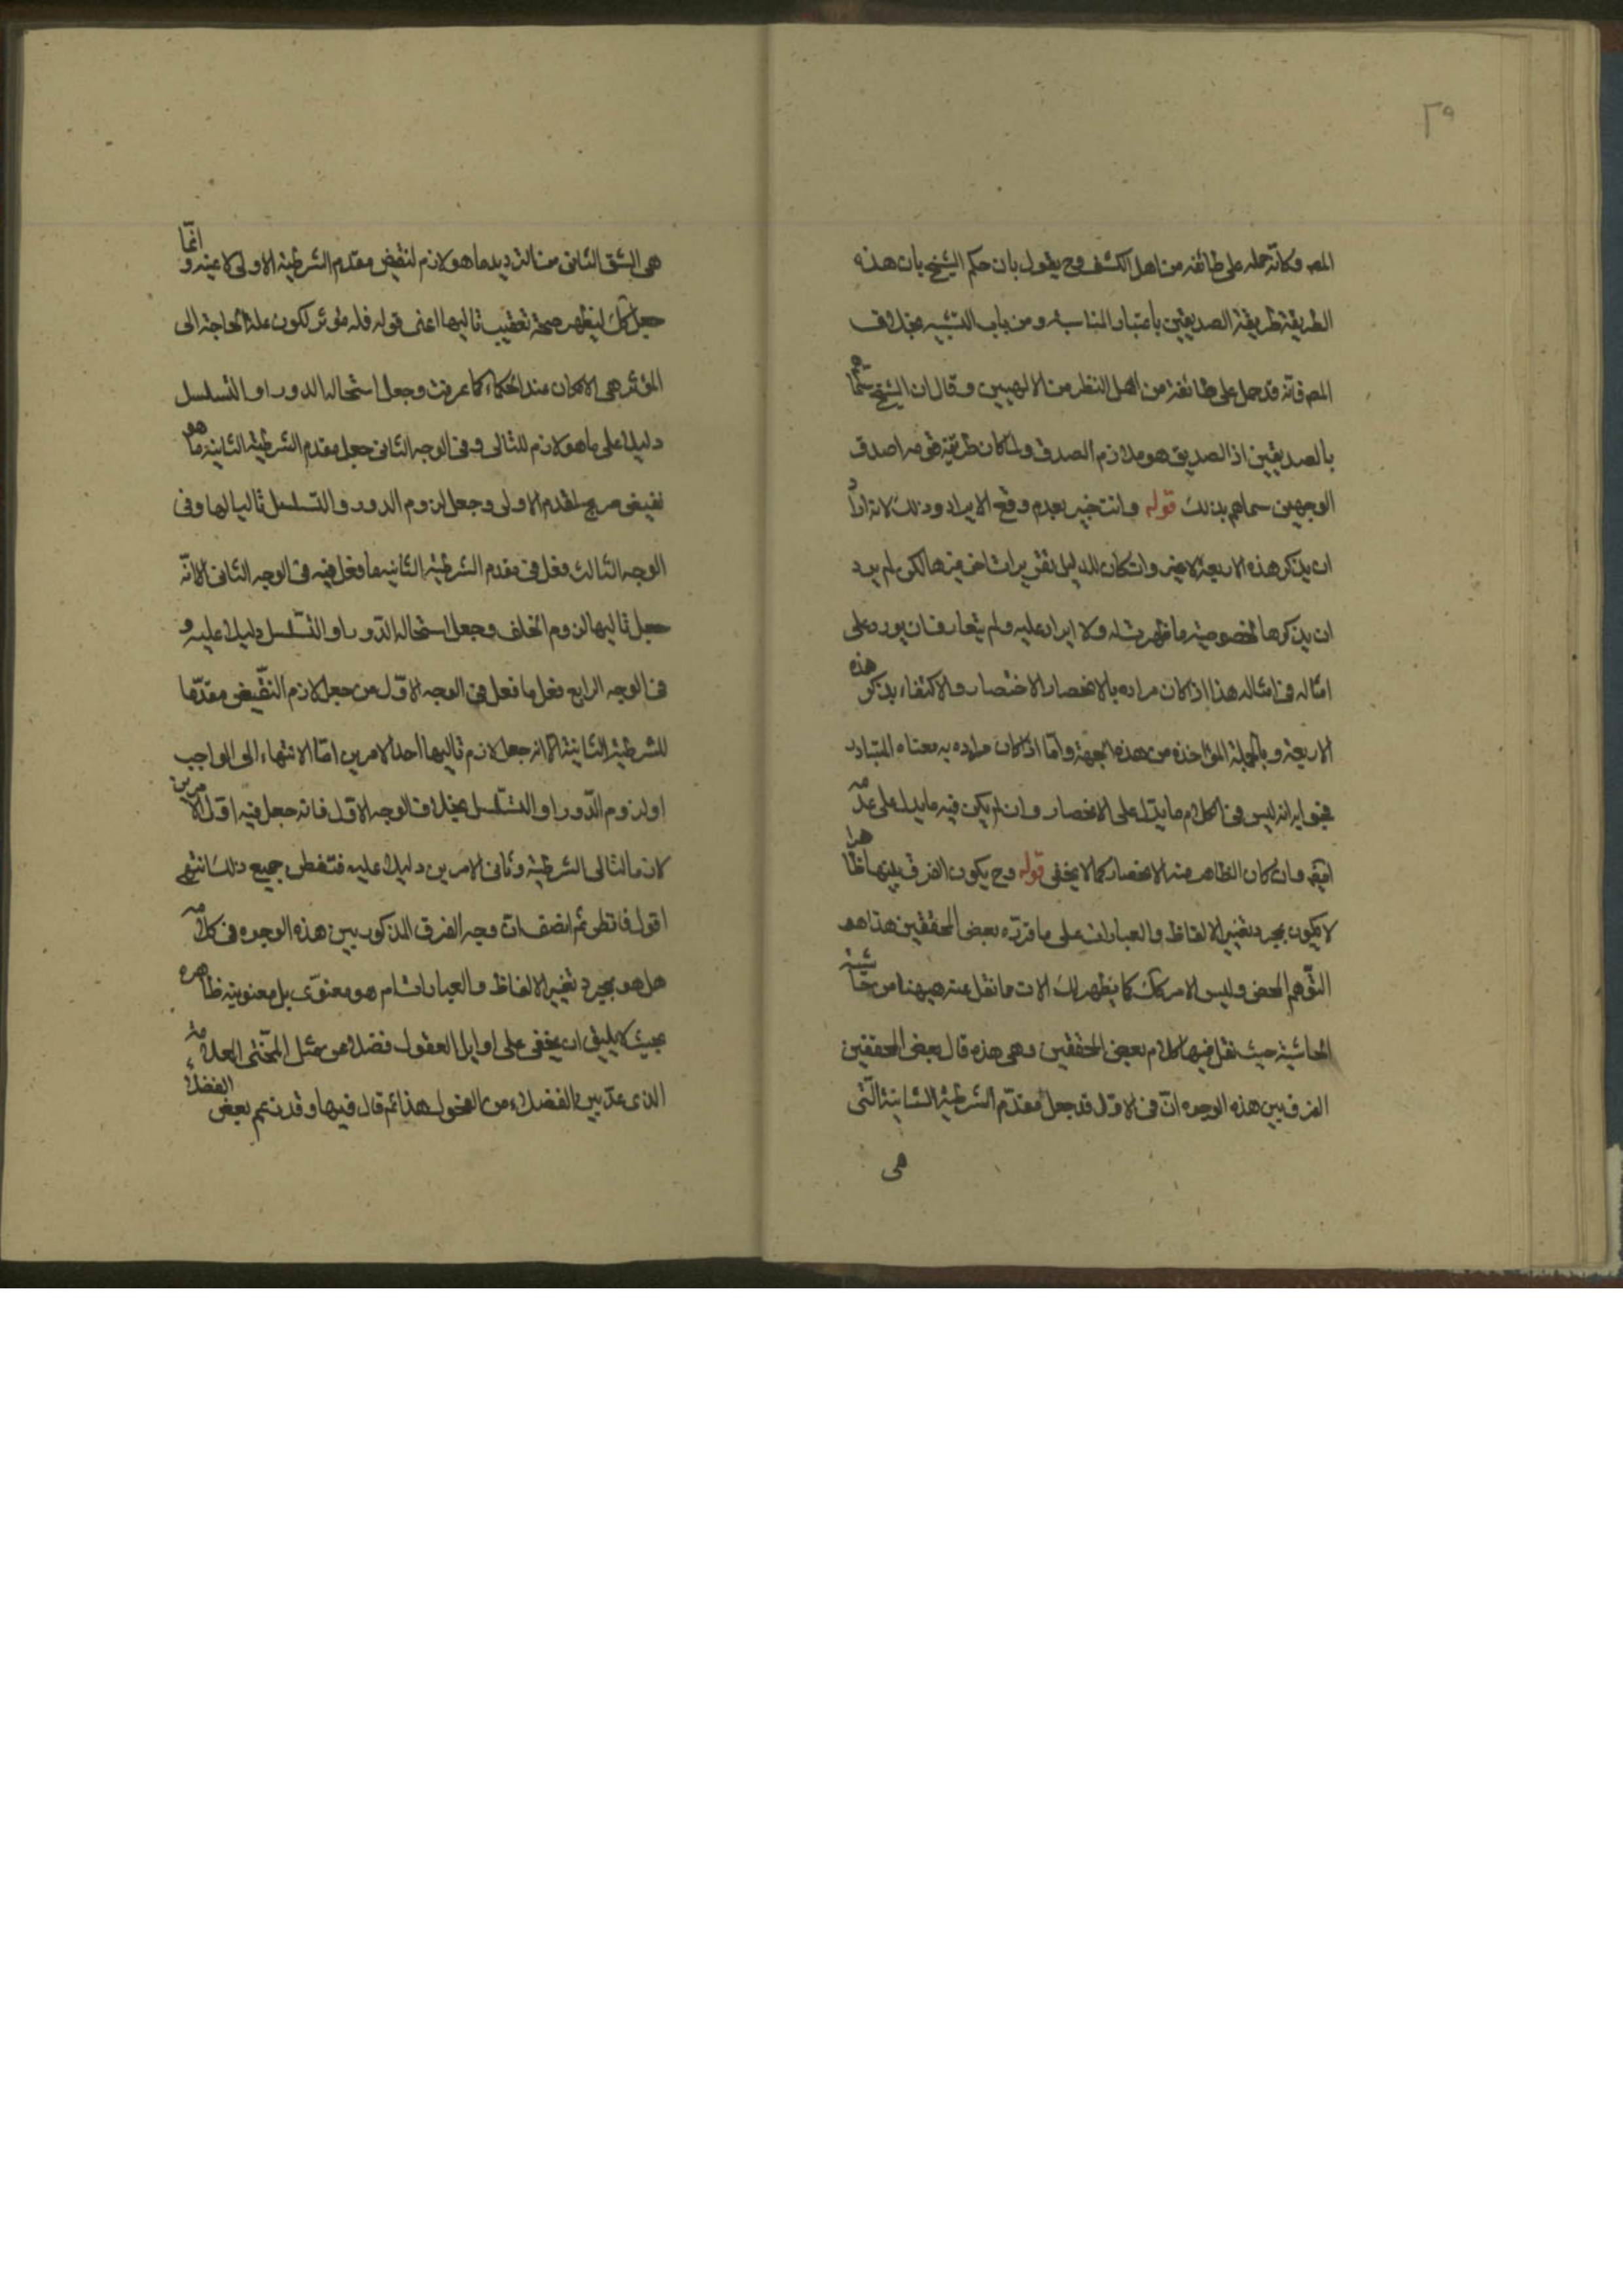 ٢٩
المص وكانه حمله على طائفة من اهل الكشف وح يقول بان حكم الشيخ بان هذه
الطريقة طريقة الصديقين باعتبار المناسبة ومن باب التشبيه بخلاف
المص فانه قد حمل على طائفة من اهل النظر من الالهيين وقال ان الشيخ سماهم
بالصديقين اذ الصديق هو ملازم الصدق ولما كان طريقة قومه اصدق
الوجهين سماهم بذلك قوله وانت خبير بعدم وقع الايراد وذلك لانه اراد
ان يذكر هذه الاربعة لا غير وان كان للدليل تقريرات اخر غيرها لكن لم يرد
ان يذكرها لخصوصية ما ظهرت له ولا ايراد عليه ولم يتعارف ان يورد على
امثاله في امثاله هذا اذا كان مراده بالانحصار الاختصار والاكتفاء بذكر هذه
الاربعة وبالجملة المؤاخذة من هذه الجهة واما اذا كان مراده به معناه المتبادر
فجوابه انه ليس في الكلام ما يدل على الانحصار وان لم يكن فيه ما يدل على عدمه
ايضا وان كان الظاهر منه الانحصار كما لا يخفى قوله وح يكون الفرق بينها ظاهرا
لا يكون بمجرد تغيير الالفاظ والعبارات على ما قرره بعض المحققين هذا هو
التوهم المحض وليس الامر كذلك كما يظهر لك الان مما نقل عنه هيهنا من حاشية
الحاشية حيث نقل فيها كلام بعض المحققين وهي هذه قال بعض المحققين
الفرق بين هذه الوجوه ان في الاول قد جعل مقدم الشرطية الثانية التي
هي
هي الشق الثاني من الترديد ما هو لازم لنقيض مقدم الشرطية الاولى لا عينه وانما
جعل كذلك ليظهر صحة تعقيب تاليها اعنى قوله فله مؤثر لكون علة الحاجة الى
المؤثر هي الامكان عند الحكماء كما عرفت وجعل استحالة الدور او التسلسل
دليلا على ما هو لازم للتالى وفى الوجه الثاني جعل مقدم الشرطية الثانية ما هو
نقيض صريح لمقدم الاولى وجعل لزوم الدور والتسلسل تاليا لها وفى
الوجه الثالث فعل فى مقدم الشرطية الثانية ما فعل فيه فى الوجه الثانى الا انه
جعل تاليها لزوم الخلف وجعل استحالة الدور او التسلسل دليلا عليه و
فى الوجه الرابع فعل ما فعل فى الوجه الاول من جعل لازم النقيض مقدما
للشرطية الثانية الا انه جعل لازم تاليها احد الامرين اما الانتهاء الى الواجب
او لزوم الدور او التسلسل بخلاف الوجه الاول فانه جعل فيه اول الامرين
لازما لتالى الشرطية وثانى الامرين دليلا عليه فتفطن جميع ذلك انتهى
اقول فانظر ثم انصف ان وجه الفرق المذكور بين هذه الوجوه فى كلامه
هل هو بمجرد تغيير الالفاظ والعبارات ام هو معنوى بل معنويته ظاهرة
بحيث لا يليق ان يخفى على اوايل العقول فضلا عن مثل المحشى العلامة
الذى عد بين الفضلاء من الفحول هذا ثم قال فيها وقد زعم بعض الفضلاء